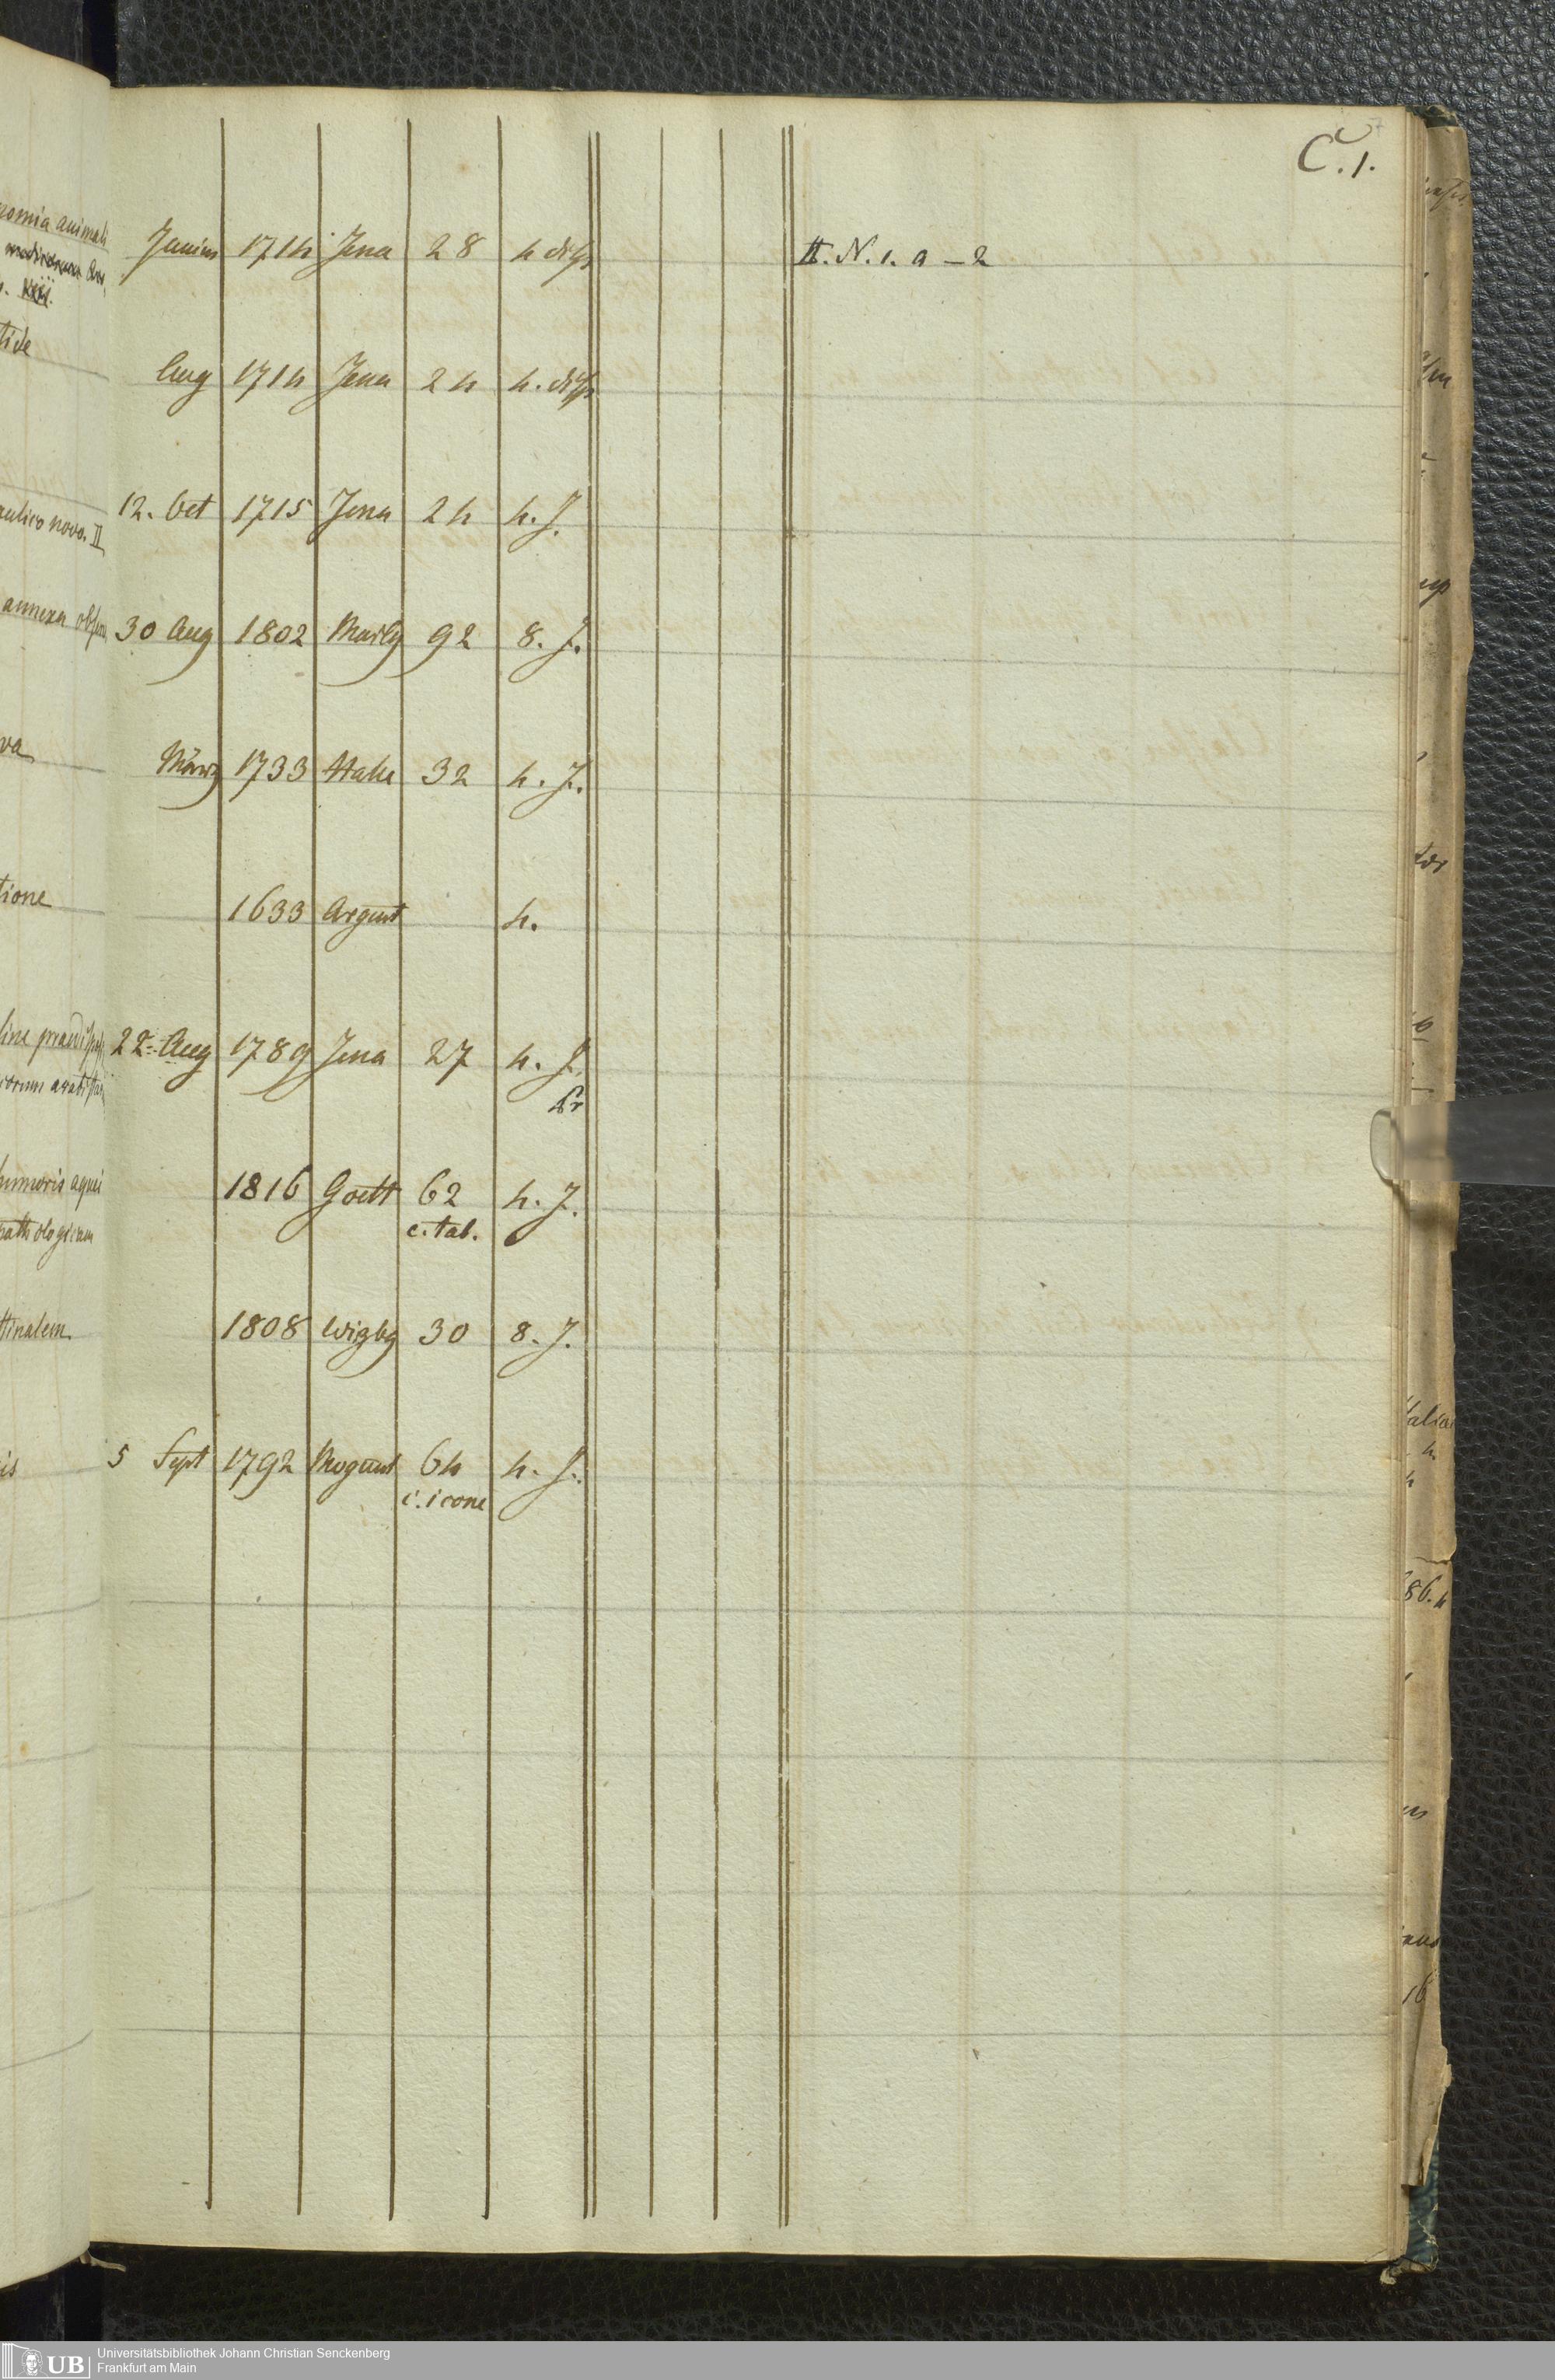 C. 1.
Junius 1714 Jena 28 4 diss II. N. 1. a – 2
Aug 1714 Jena 24 4. diss
12. Oct 1715 Jena 24 4. J.
30 Aug 1802 Marbg 92 8. J.
März 1733 Halle 32 4. J.
1633 Argent 4.
22. Aug 1789 Jena 27 4. J.
Pr
1816 Goett 62 4. J.
c. tab.
1808 Wirzbg 30 8. J.
5 Sept 1792 Mogunt 64 4. J.
c. icone
nomia animali
tide
aulico novo. II
annexa observ
va
tione
humoris aquei
pathologicam
ttinalem
is
86. 4
16
UB Universitätsbibliothek Johann Christian Senckenberg
Frankfurt am Main